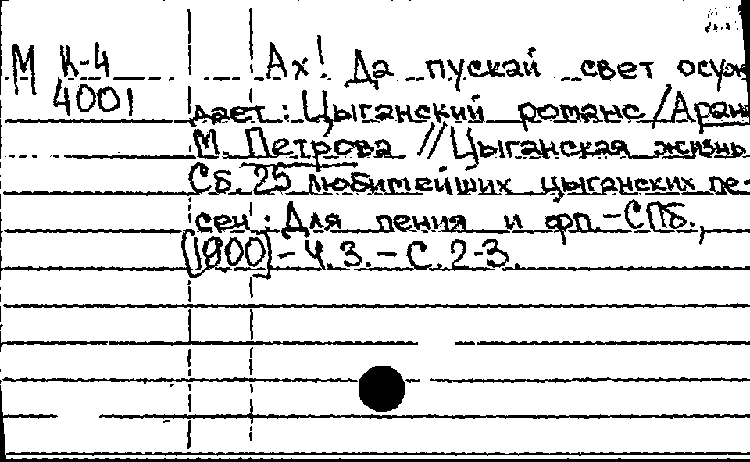 М К-4 Ах! Да пускай свет осуж
4001 дает: Цыганский романс / Аран
М. Петрова // Цыганская жизнь
Сб. 25 любимейших цыганских пе-
сен: Для пения и фп. - СПб.,
[1900] - Ч. 3. - С. 2-3.